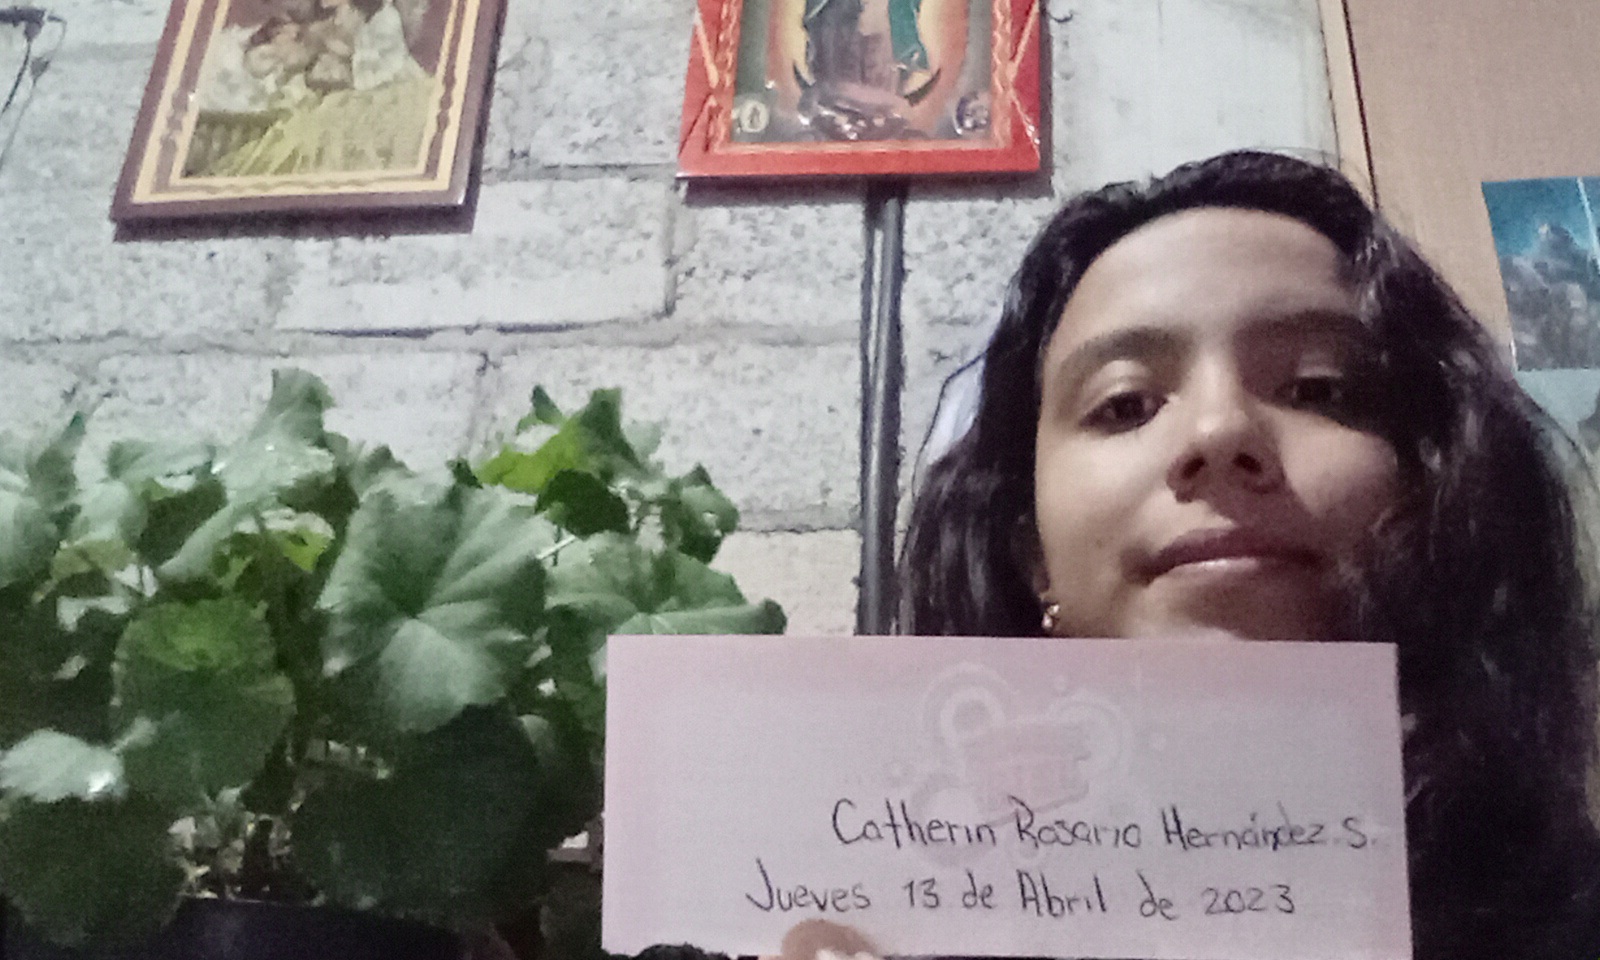 Catherin Rosario Hernández. S.
Jueves 13 de Abril de 2023